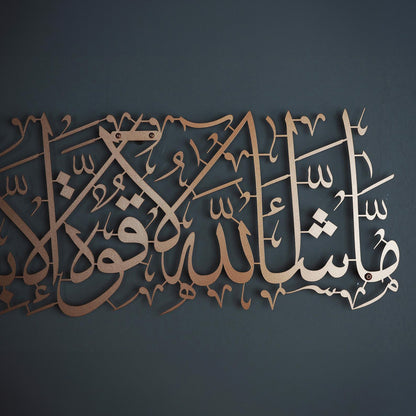 ما شاء الله لا قوة إلا